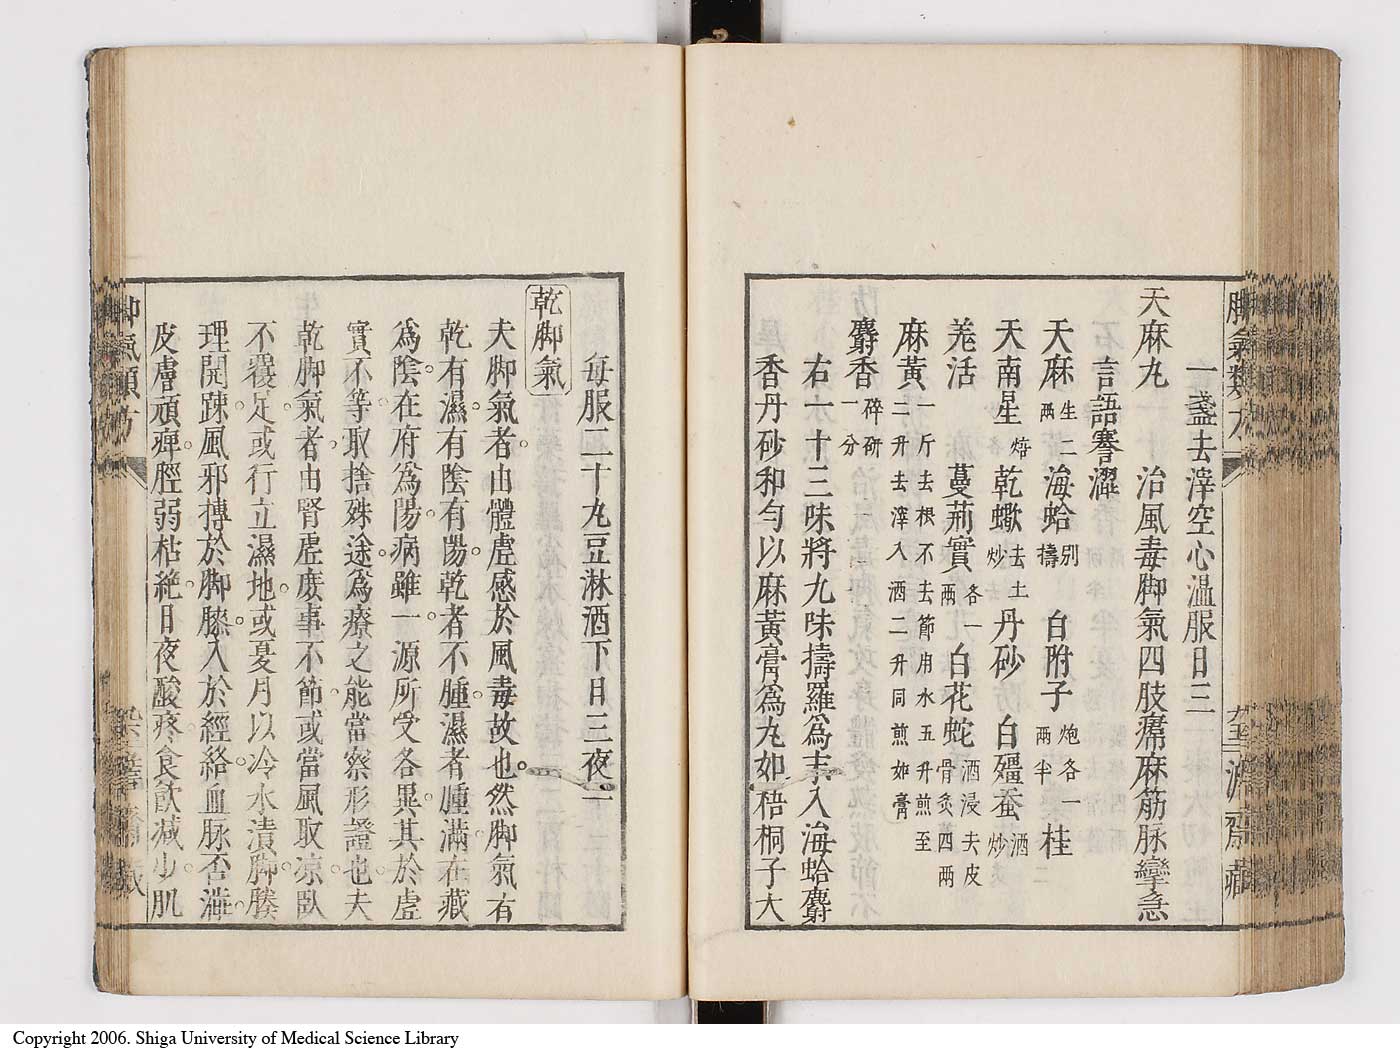 一盞去滓空心温服日三
天麻丸　治風毒脚氣四肢𤸷麻筋脉攣急
言語謇澀
天麻生二兩海蛤別擣　白附子炮各一兩半　桂二
天南星焙乾蠍去土炒丹砂　白殭蚕酒炒
羗活　蔓荊實各一兩白花蛇酒浸去皮骨炙四兩
麻黄一斤去根不去節用水五升煎至二升去滓入酒二升同煎如膏
麝香碎研一分
右六十三味將九味擣羅為末入海蛤麝
香丹砂和勻以麻黄膏為丸如梧桐子大
每服二十丸豆淋酒下日三夜一
乾脚氣
夫脚氣者由體虛感於風毒故也然脚氣有
乾有濕有陰有陽乾者不腫濕者腫滿在藏
為陰在府為陽病雖一源所受各異其於虛
實不等取捨殊途為療之能當察形證也夫
乾脚氣者由腎虛廢事不節或當風取涼臥
不覆足或行立濕地或夏月以冷水漬脚膝
理開踈風邪搏於脚膝入於經絡血脉否澁
皮膚頑痺脛弱枯絶日夜酸疼食飲減少肌
脚氣類方
濟齋藏
Copyright 2006. Shiga University of Medical Science Library